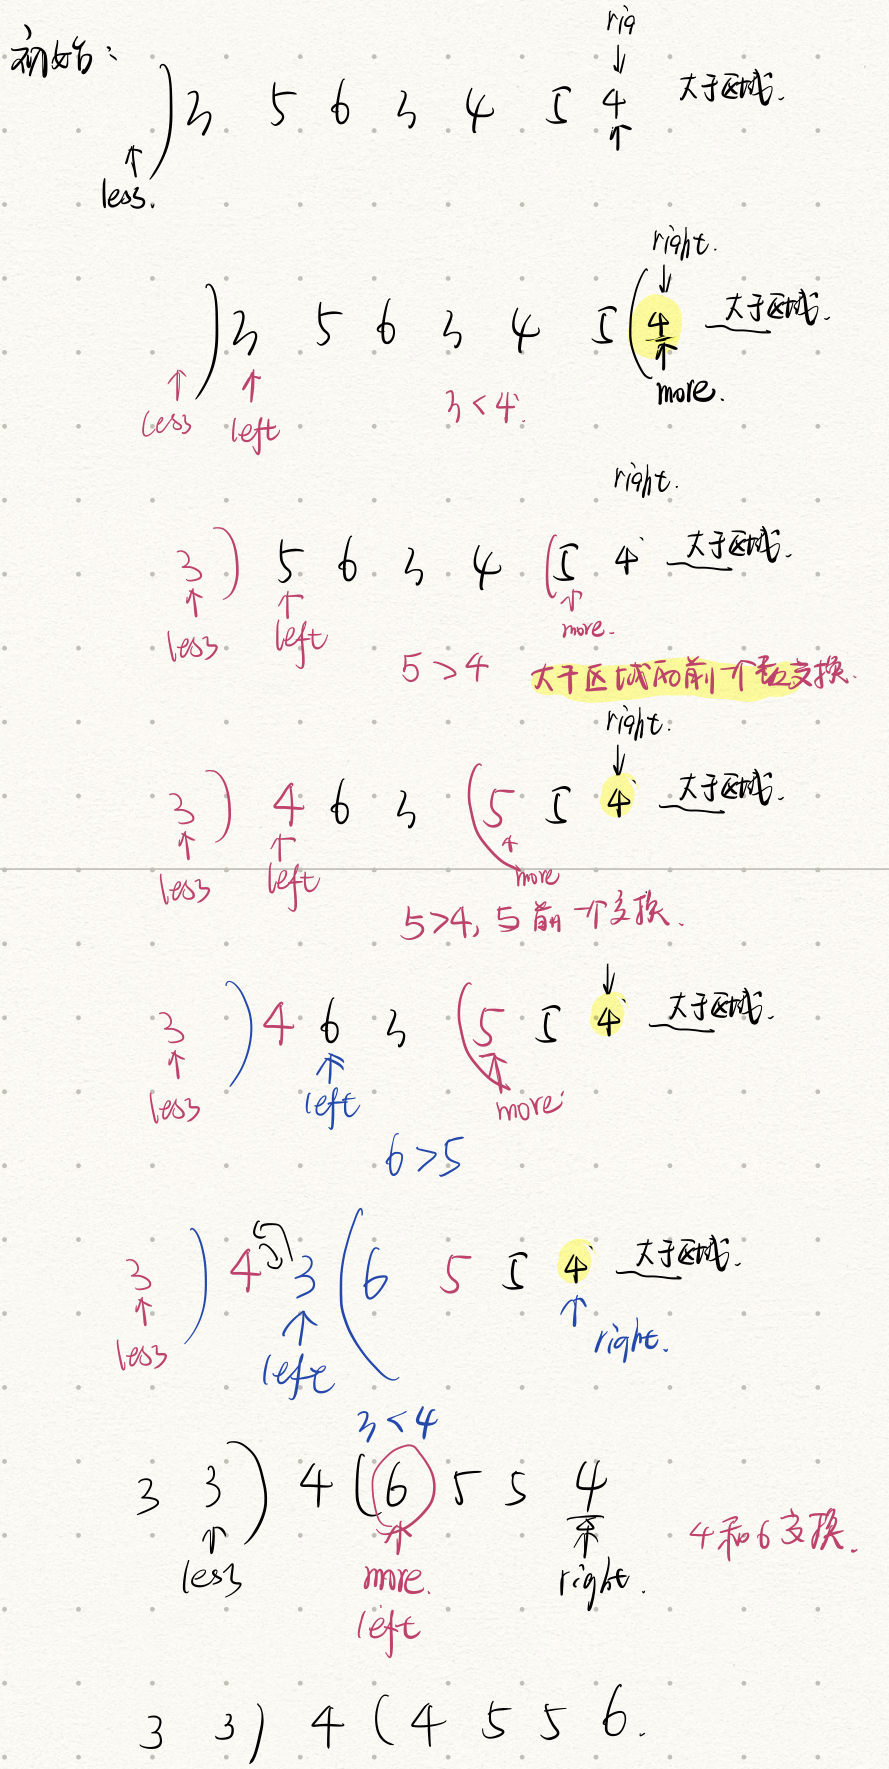 rig
初始：
↓
) 3 5 6 3 4 5 4 大于区域.
↑ ↑
less.
right.
↓
) 3 5 6 3 4 5 ( 4 大于区域.
↑ ↑ ↑
less left 3 < 4. more.
right.
3 ) 5 6 3 4 ( 5 4 大于区域.
↑ ↑ ↑
less left more.
5 > 4 大于区域和前一个数交换.
right.
↓
3 ) 4 6 3 ( 5 5 4 大于区域.
↑ ↑ ↑
less left more
5>4, 5前一个交换.
↓
3 ) 4 6 3 ( 5 5 4 大于区域.
↑ ↑ ↑
less left more
6 > 5
3 ) 4 3 ( 6 5 5 4 大于区域.
↑ ↑ ↑
less left right.
3 < 4
3 3 ) 4 ( 6 5 5 4
↑ ↑ ↑ 4和6交换.
less more. right.
left
3 3 ) 4 ( 4 5 5 6.